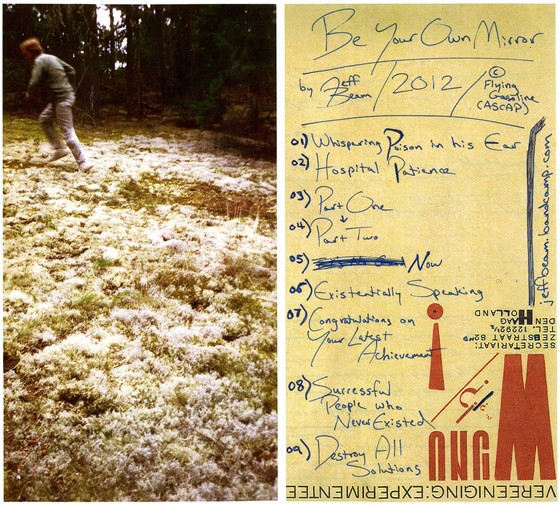 Be Your Own Mirror
by Jeff Beam / 2012 / © Flying Gasoline (ASCAP)
01) Whispering Poison in his Ear
02) Hospital Patience
03) Part One
04) Part Two
05) Now
06) Existentially Speaking
07) Congratulations on
Your Latest
Achievement
08) Successful
People who
Never Existed
09) Destroy All
Solutions
jeffbeam.bandcamp.com
SECRETARIAAT:
DEN HAAG
HOLLAND
VEREENIGING:EXPERIMENTEE